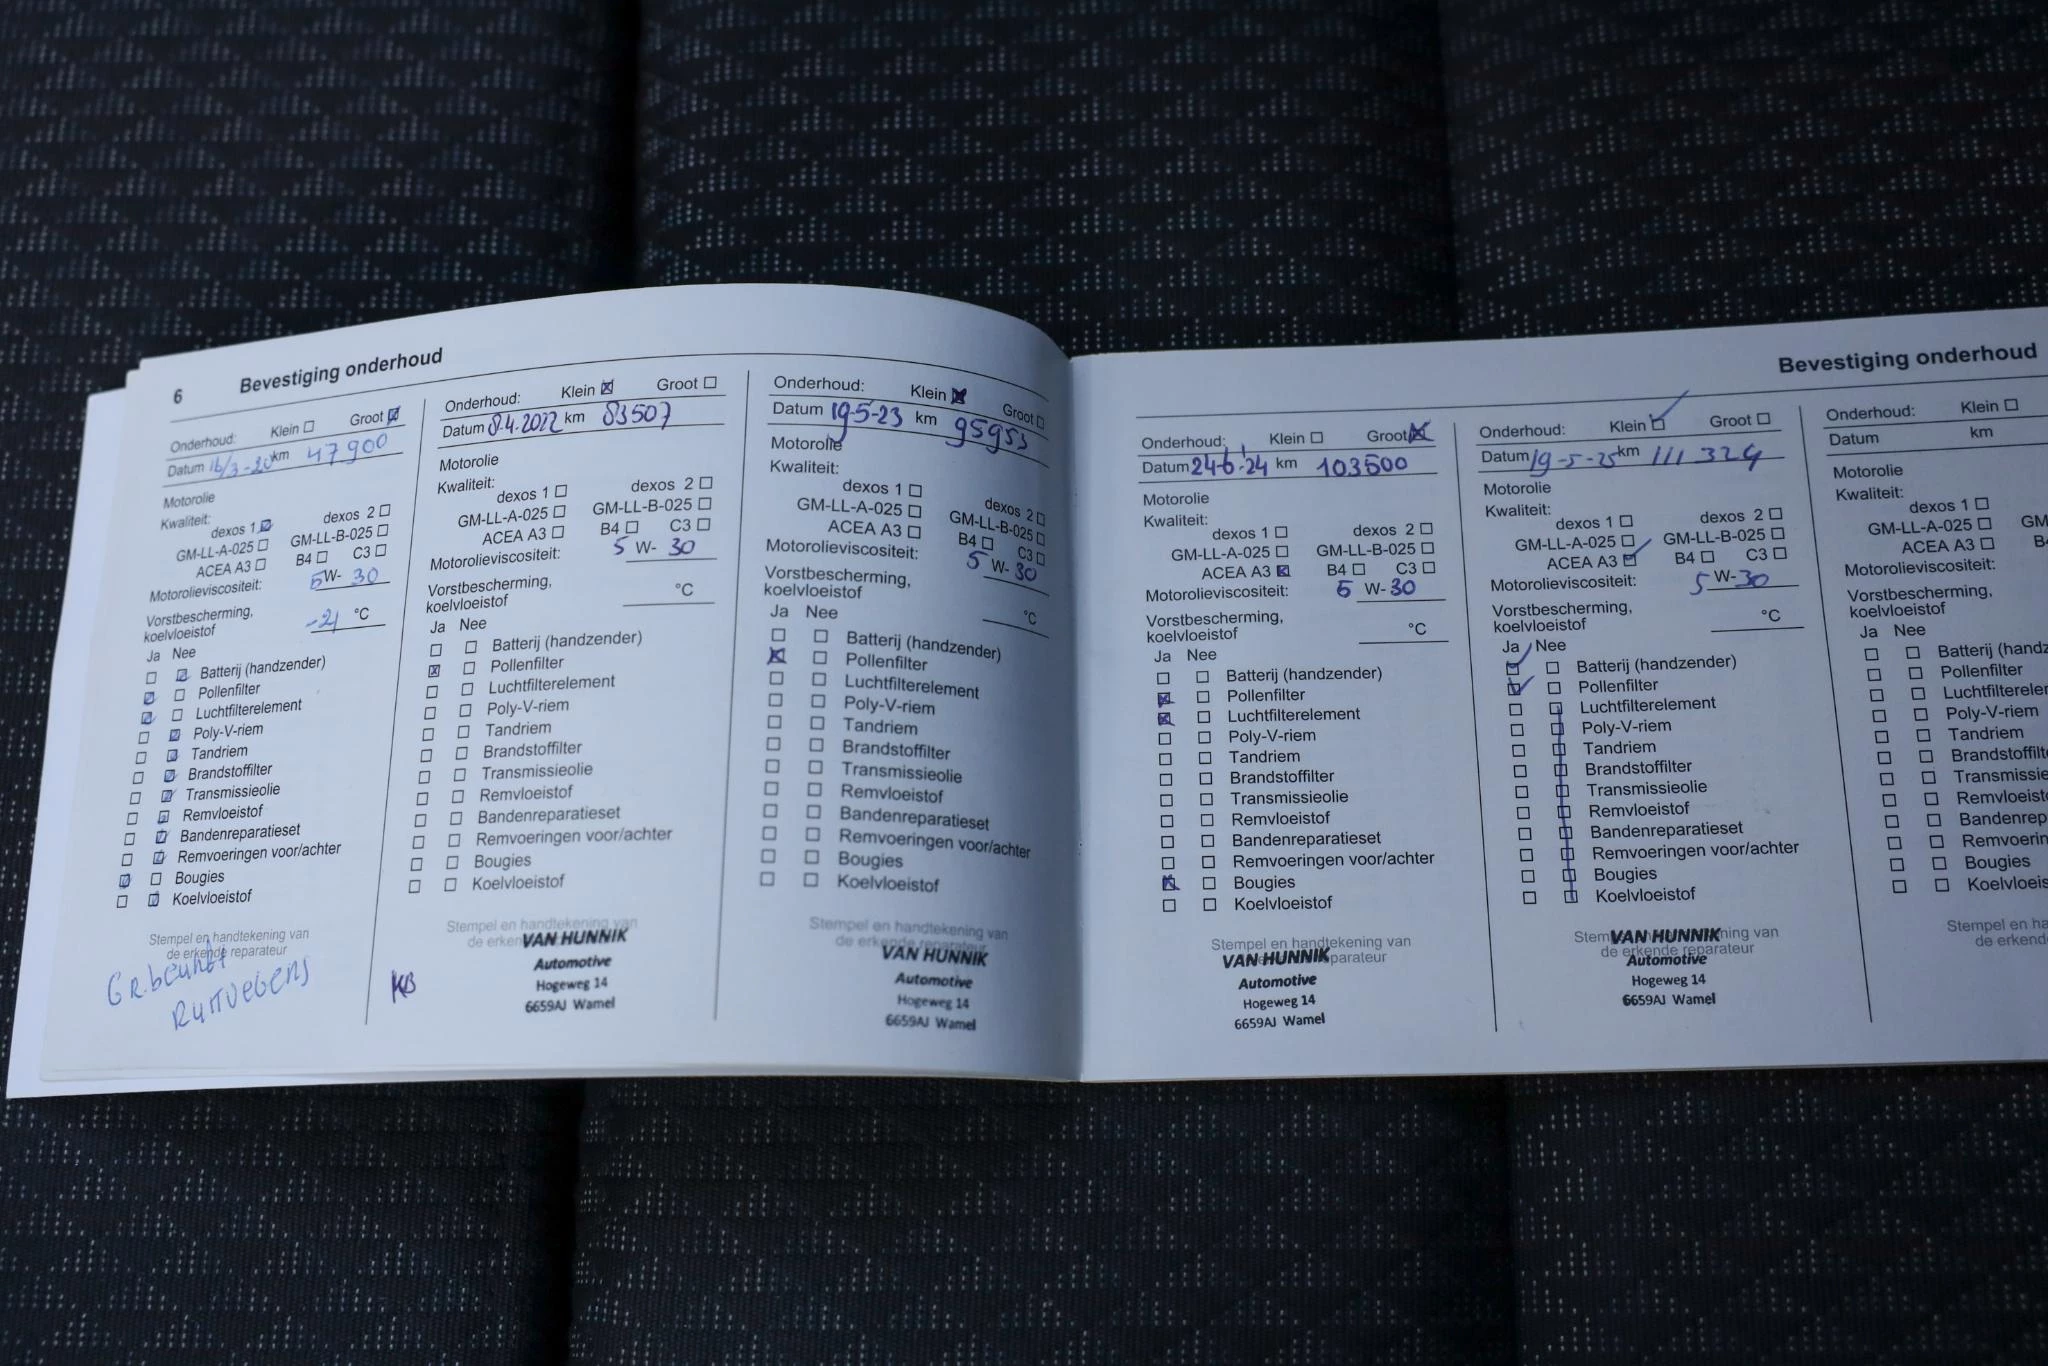 6 Bevestiging onderhoud
Onderhoud: Klein Groot
Datum 16/3-20 km 47900
Motorolie
Kwaliteit:
dexos 1 dexos 2
GM-LL-A-025 GM-LL-B-025
ACEA A3 B4 C3
Motorolieviscositeit: 5 W- 30
Vorstbescherming,
koelvloeistof -21 °C
Ja Nee
Batterij (handzender)
Pollenfilter
Luchtfilterelement
Poly-V-riem
Tandriem
Brandstoffilter
Transmissieolie
Remvloeistof
Bandenreparatieset
Remvoeringen voor/achter
Bougies
Koelvloeistof
Stempel en handtekening van
de erkende reparateur
Gr.beurt
Onderhoud: Klein Groot
Datum 8.4.2022 km 83507
Motorolie
Kwaliteit:
dexos 1 dexos 2
GM-LL-A-025 GM-LL-B-025
ACEA A3 B4 C3
Motorolieviscositeit: 5 W- 30
Vorstbescherming,
koelvloeistof °C
Ja Nee
Batterij (handzender)
Pollenfilter
Luchtfilterelement
Poly-V-riem
Tandriem
Brandstoffilter
Transmissieolie
Remvloeistof
Bandenreparatieset
Remvoeringen voor/achter
Bougies
Koelvloeistof
Stempel en handtekening van
de erken
VAN HUNNIK
Automotive
KB
Hogeweg 14
6659AJ Wamel
Onderhoud: Klein Groot
Datum 19-5-23 km 95953
Motorolie
Kwaliteit:
dexos 1 dexos 2
GM-LL-A-025 GM-LL-B-025
ACEA A3 B4 C3
Motorolieviscositeit: 5 W- 30
Vorstbescherming,
koelvloeistof °C
Ja Nee
Batterij (handzender)
Pollenfilter
Luchtfilterelement
Poly-V-riem
Tandriem
Brandstoffilter
Transmissieolie
Remvloeistof
Bandenreparatieset
Remvoeringen voor/achter
Bougies
Koelvloeistof
Stempel en handtekening van
de erkende reparateur
VAN HUNNIK
Automotive
Hogeweg 14
6659AJ Wamel
Bevestiging onderhoud
Onderhoud: Klein Groot
Datum 24-6-'24 km 103500
Motorolie
Kwaliteit:
dexos 1 dexos 2
GM-LL-A-025 GM-LL-B-025
ACEA A3 B4 C3
Motorolieviscositeit: 5 W- 30
Vorstbescherming,
koelvloeistof °C
Ja Nee
Batterij (handzender)
Pollenfilter
Luchtfilterelement
Poly-V-riem
Tandriem
Brandstoffilter
Transmissieolie
Remvloeistof
Bandenreparatieset
Remvoeringen voor/achter
Bougies
Koelvloeistof
Stempel en handtekening van
parateur
VAN HUNNIK
Automotive
Hogeweg 14
6659AJ Wamel
Onderhoud: Klein Groot
Datum 19-5-25 km 111 324
Motorolie
Kwaliteit:
dexos 1 dexos 2
GM-LL-A-025 GM-LL-B-025
ACEA A3 B4 C3
Motorolieviscositeit: 5 W-30
Vorstbescherming,
koelvloeistof °C
Ja Nee
Batterij (handzender)
Pollenfilter
Luchtfilterelement
Poly-V-riem
Tandriem
Brandstoffilter
Transmissieolie
Remvloeistof
Bandenreparatieset
Remvoeringen voor/achter
Bougies
Koelvloeistof
Stempel en handtekening van
de erkende reparateur
VAN HUNNIK
Automotive
Hogeweg 14
6659AJ Wamel
Onderhoud: Klein
Datum km
Motorolie
Kwaliteit:
dexos 1
GM-LL-A-025 GM
ACEA A3 B4
Motorolieviscositeit:
Vorstbescherming,
koelvloeistof
Ja Nee
Batterij (handz
Pollenfilter
Luchtfilterele
Poly-V-riem
Tandriem
Brandstoffilt
Transmissie
Remvloeisto
Bandenrep
Remvoerin
Bougies
Koelvloeis
Stempel en ha
de erkend